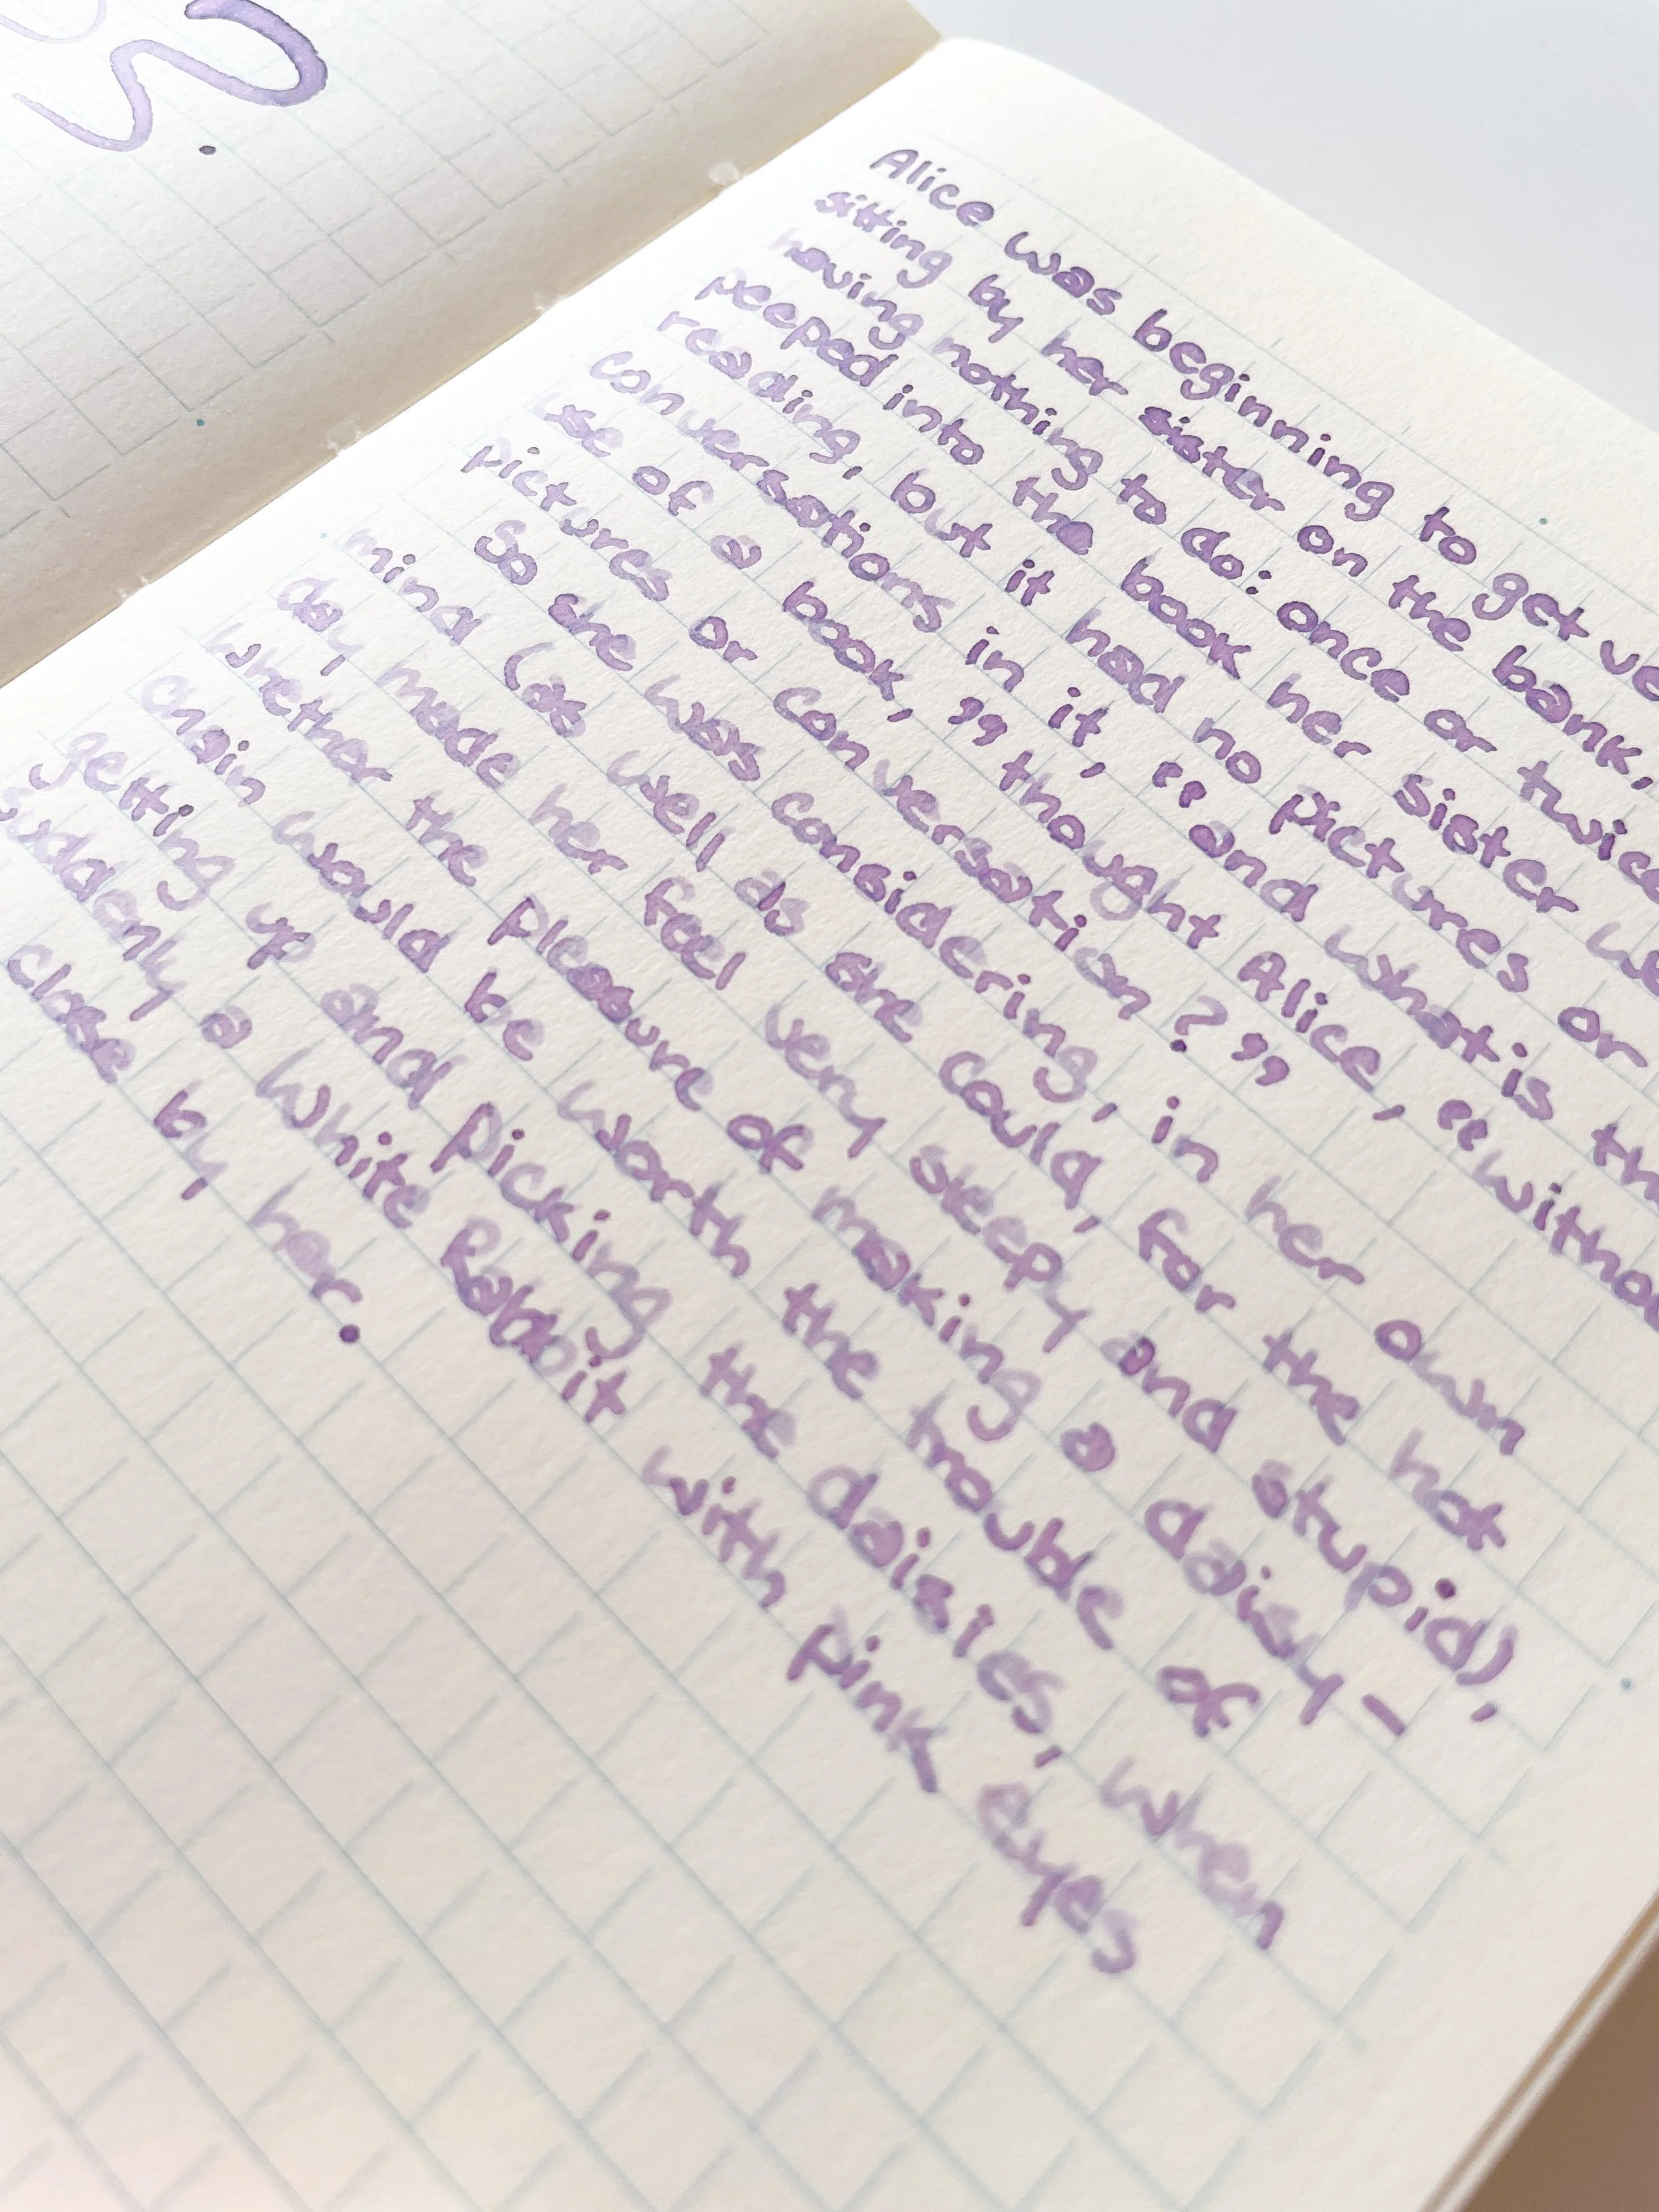 Alice was beginning to get ve
sitting by her sister on the bank,
having nothing to do: once or twice
peeped into the book her sister w
reading, but it had no pictures or
conversations in it, "and what is th
use of a book," thought Alice, "withou
pictures or conversation?"
So she was considering, in her own
mind (as well as she could, for the hot
day made her feel very sleepy and stupid),
whether the pleasure of making a daisy-
chain would be worth the trouble of
getting up and picking the daisies, when
suddenly a White Rabbit with pink eyes
close by her.